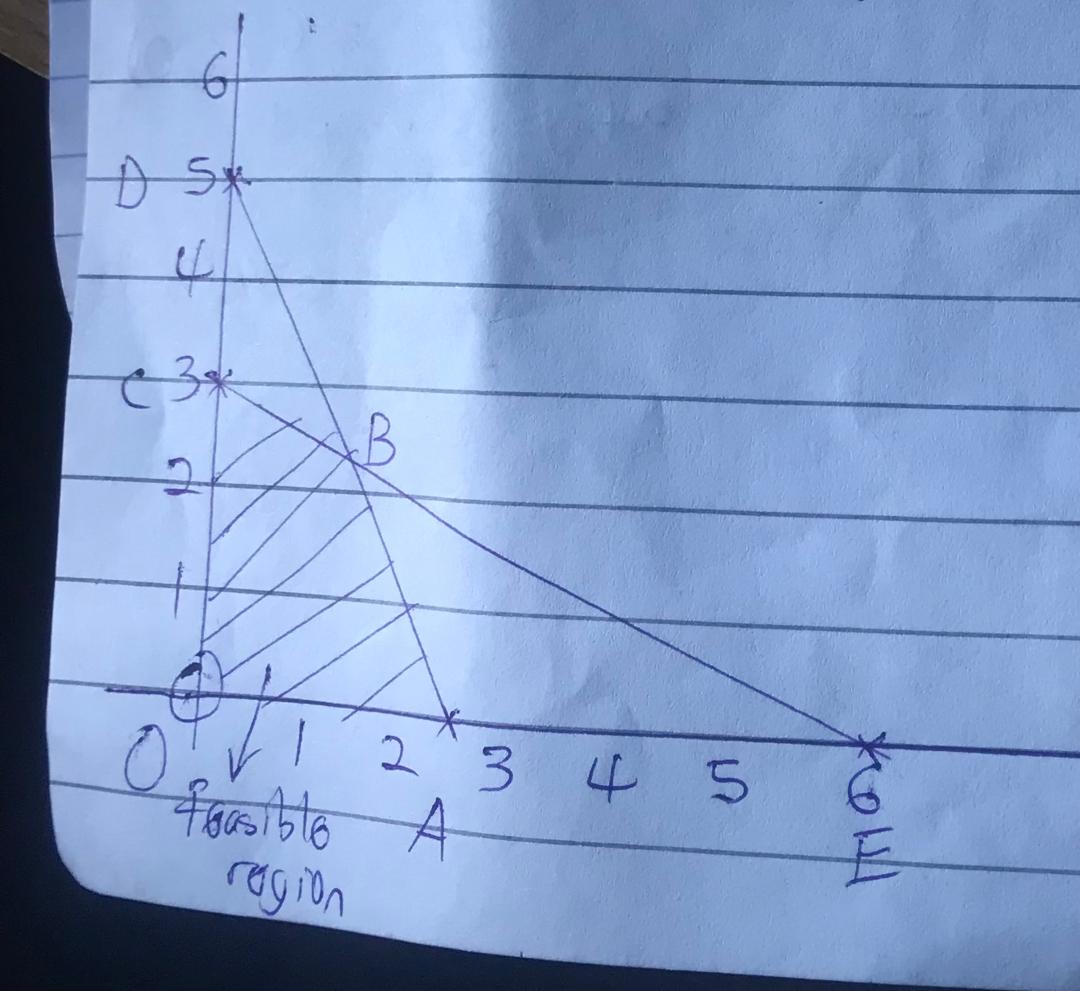 6
D 5
4
C 3
B
2
1
O 1 2 3 4 5 6
feasible A E
region